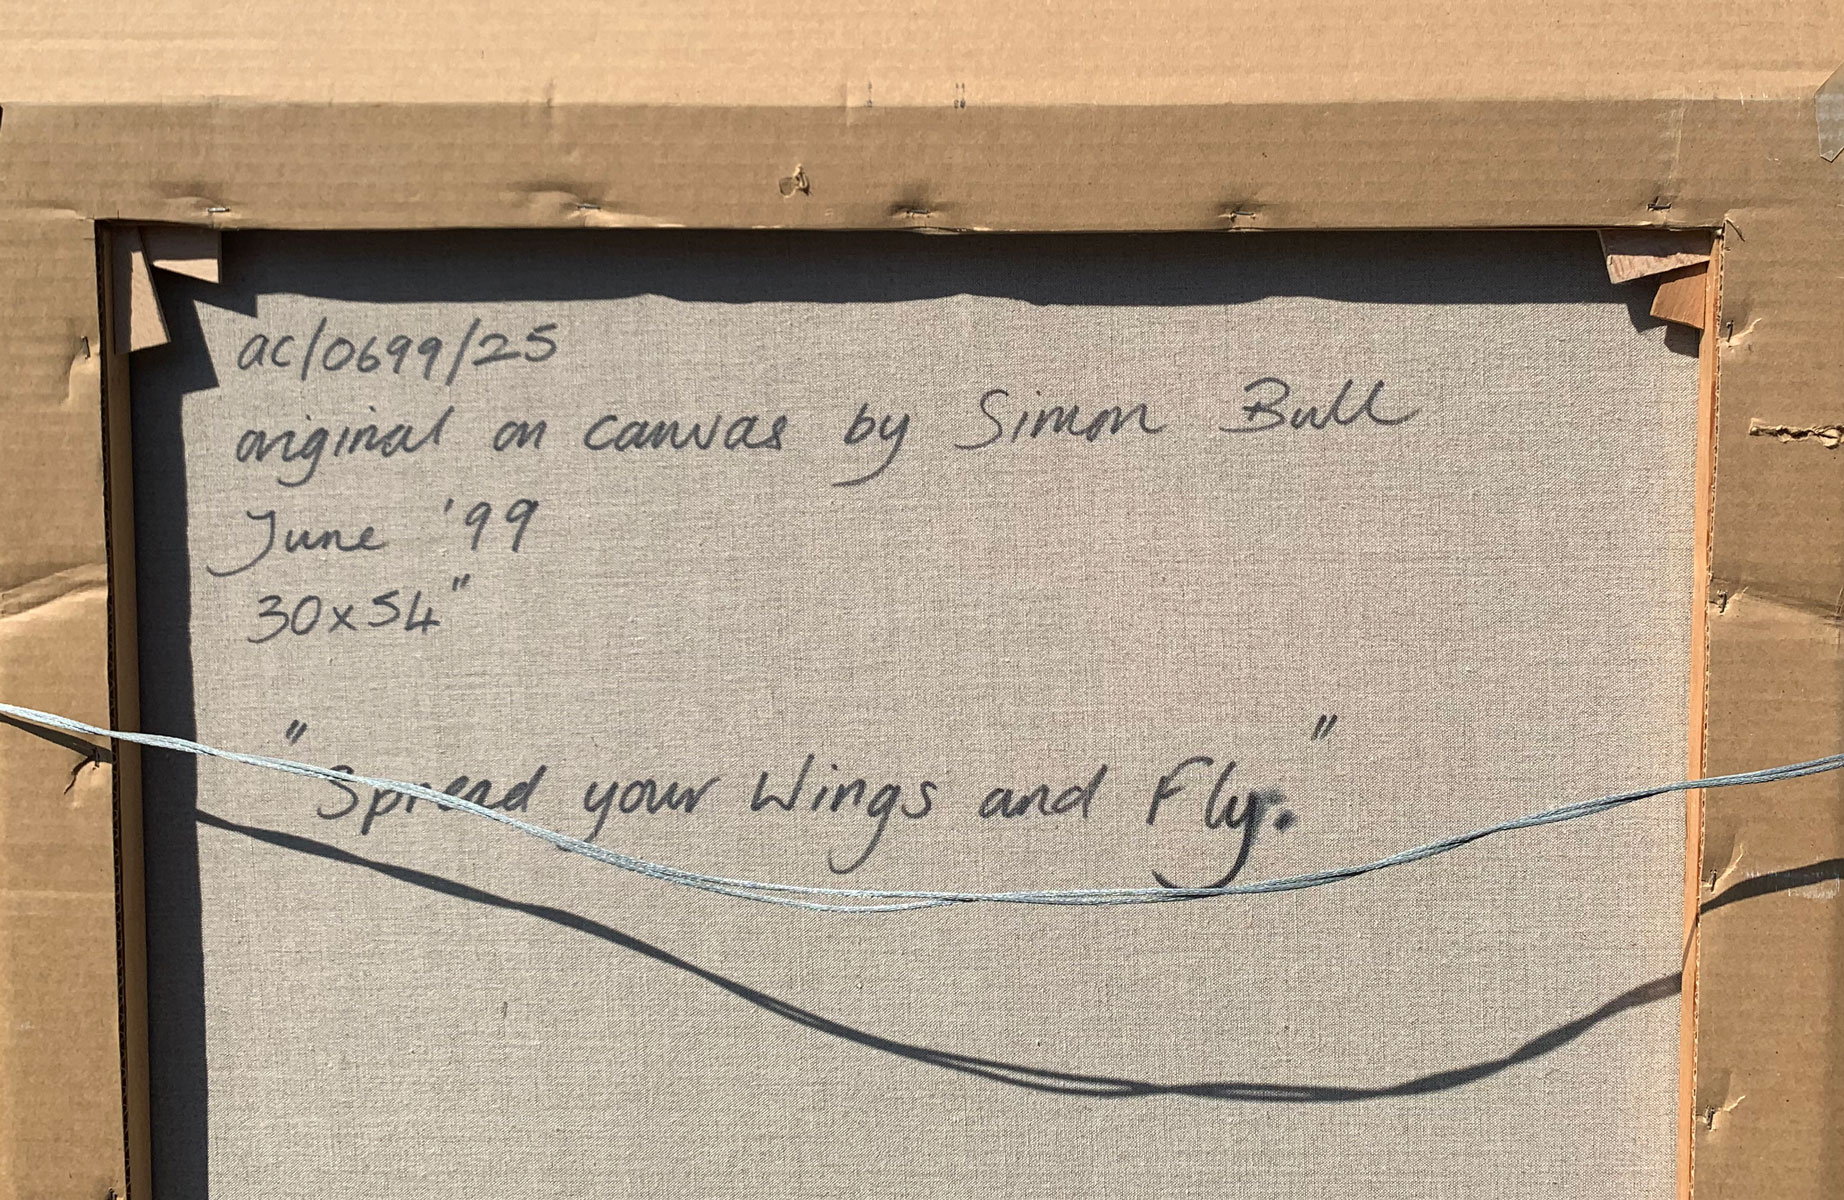 ac/0699/25
original on canvas by Simon Bull
June '99
30x54"
"Spread your Wings and Fly."